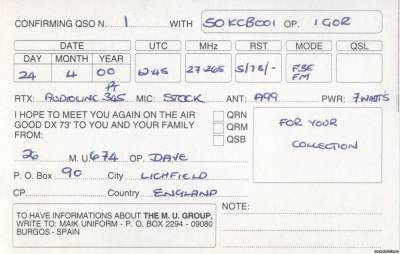 CONFIRMING QSO N. 1 WITH 50KCB001 OP. IGOR
DATE UTC MHz RST MODE QSL
DAY MONTH YEAR
24 4 00 12:45 27265 5/78/- F3E FM
RTX: AUDIOLINE 345 MIC: STOCK ANT: A99 PWR: 7WATTS
I HOPE TO MEET YOU AGAIN ON THE AIR
GOOD DX 73' TO YOU AND YOUR FAMILY
FROM:
QRN
QRM
QSB
FOR YOUR
COLLECTION
26 M. U 674 OP. DAVE
P. O. Box 90 City LICHFIELD
CP Country ENGLAND
TO HAVE INFORMATIONS ABOUT THE M. U. GROUP,
WRITE TO: MAIK UNIFORM - P.O. BOX 2294 - 09080
BURGOS - SPAIN
NOTE: